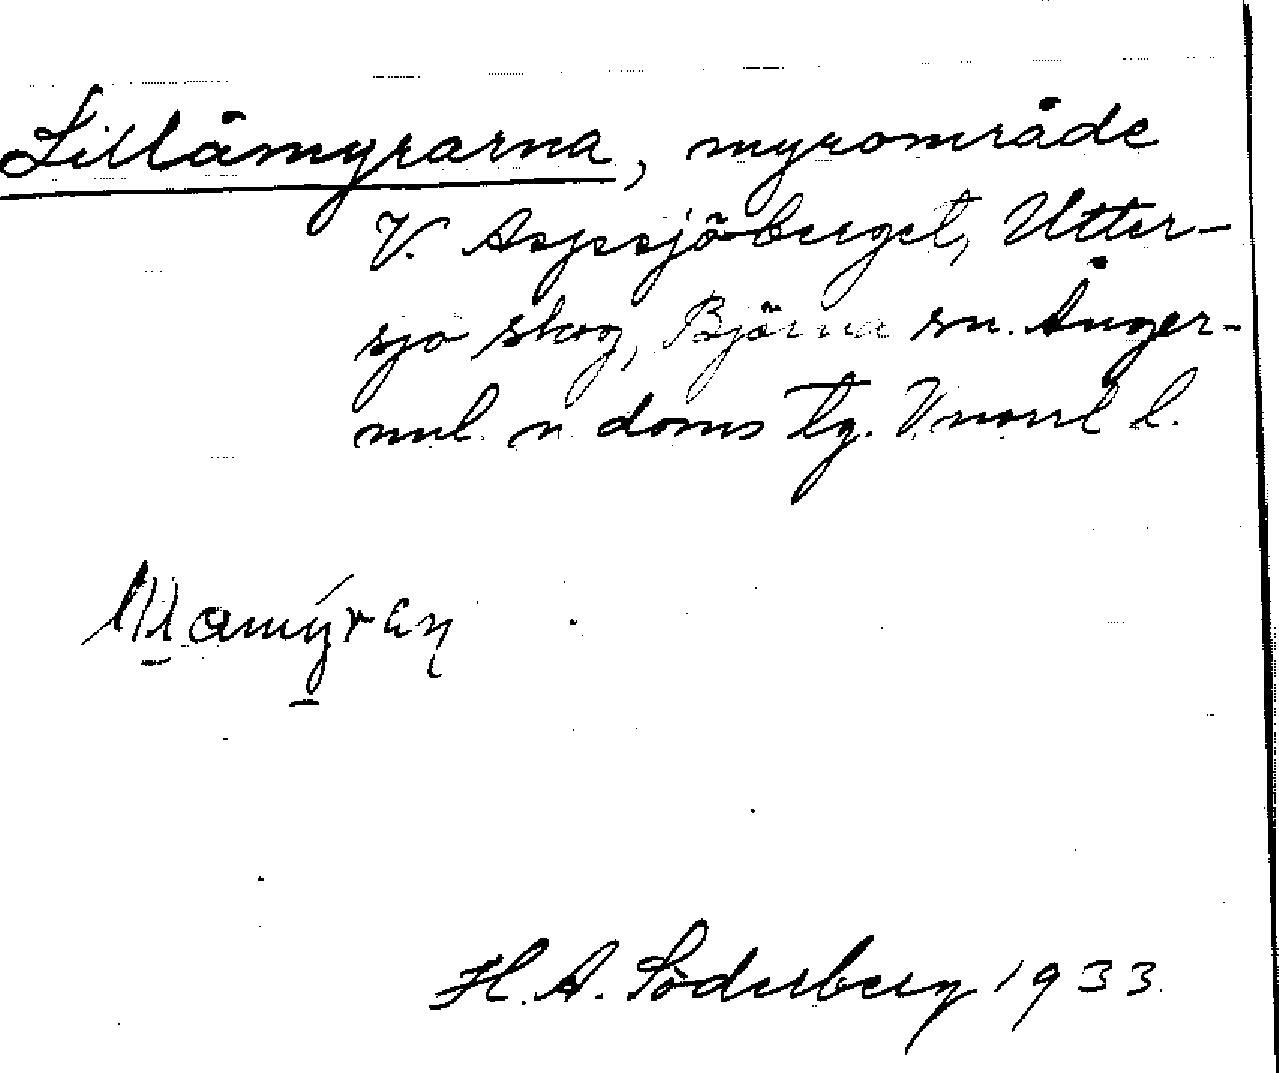 Lillåmyrarna, myrområde
V. Aspsjöberget, Utter-
sjö skog, Björna sn. Ånger-
nml. n doms tg. Vnorrl l.
H. A. Söderberg 1933